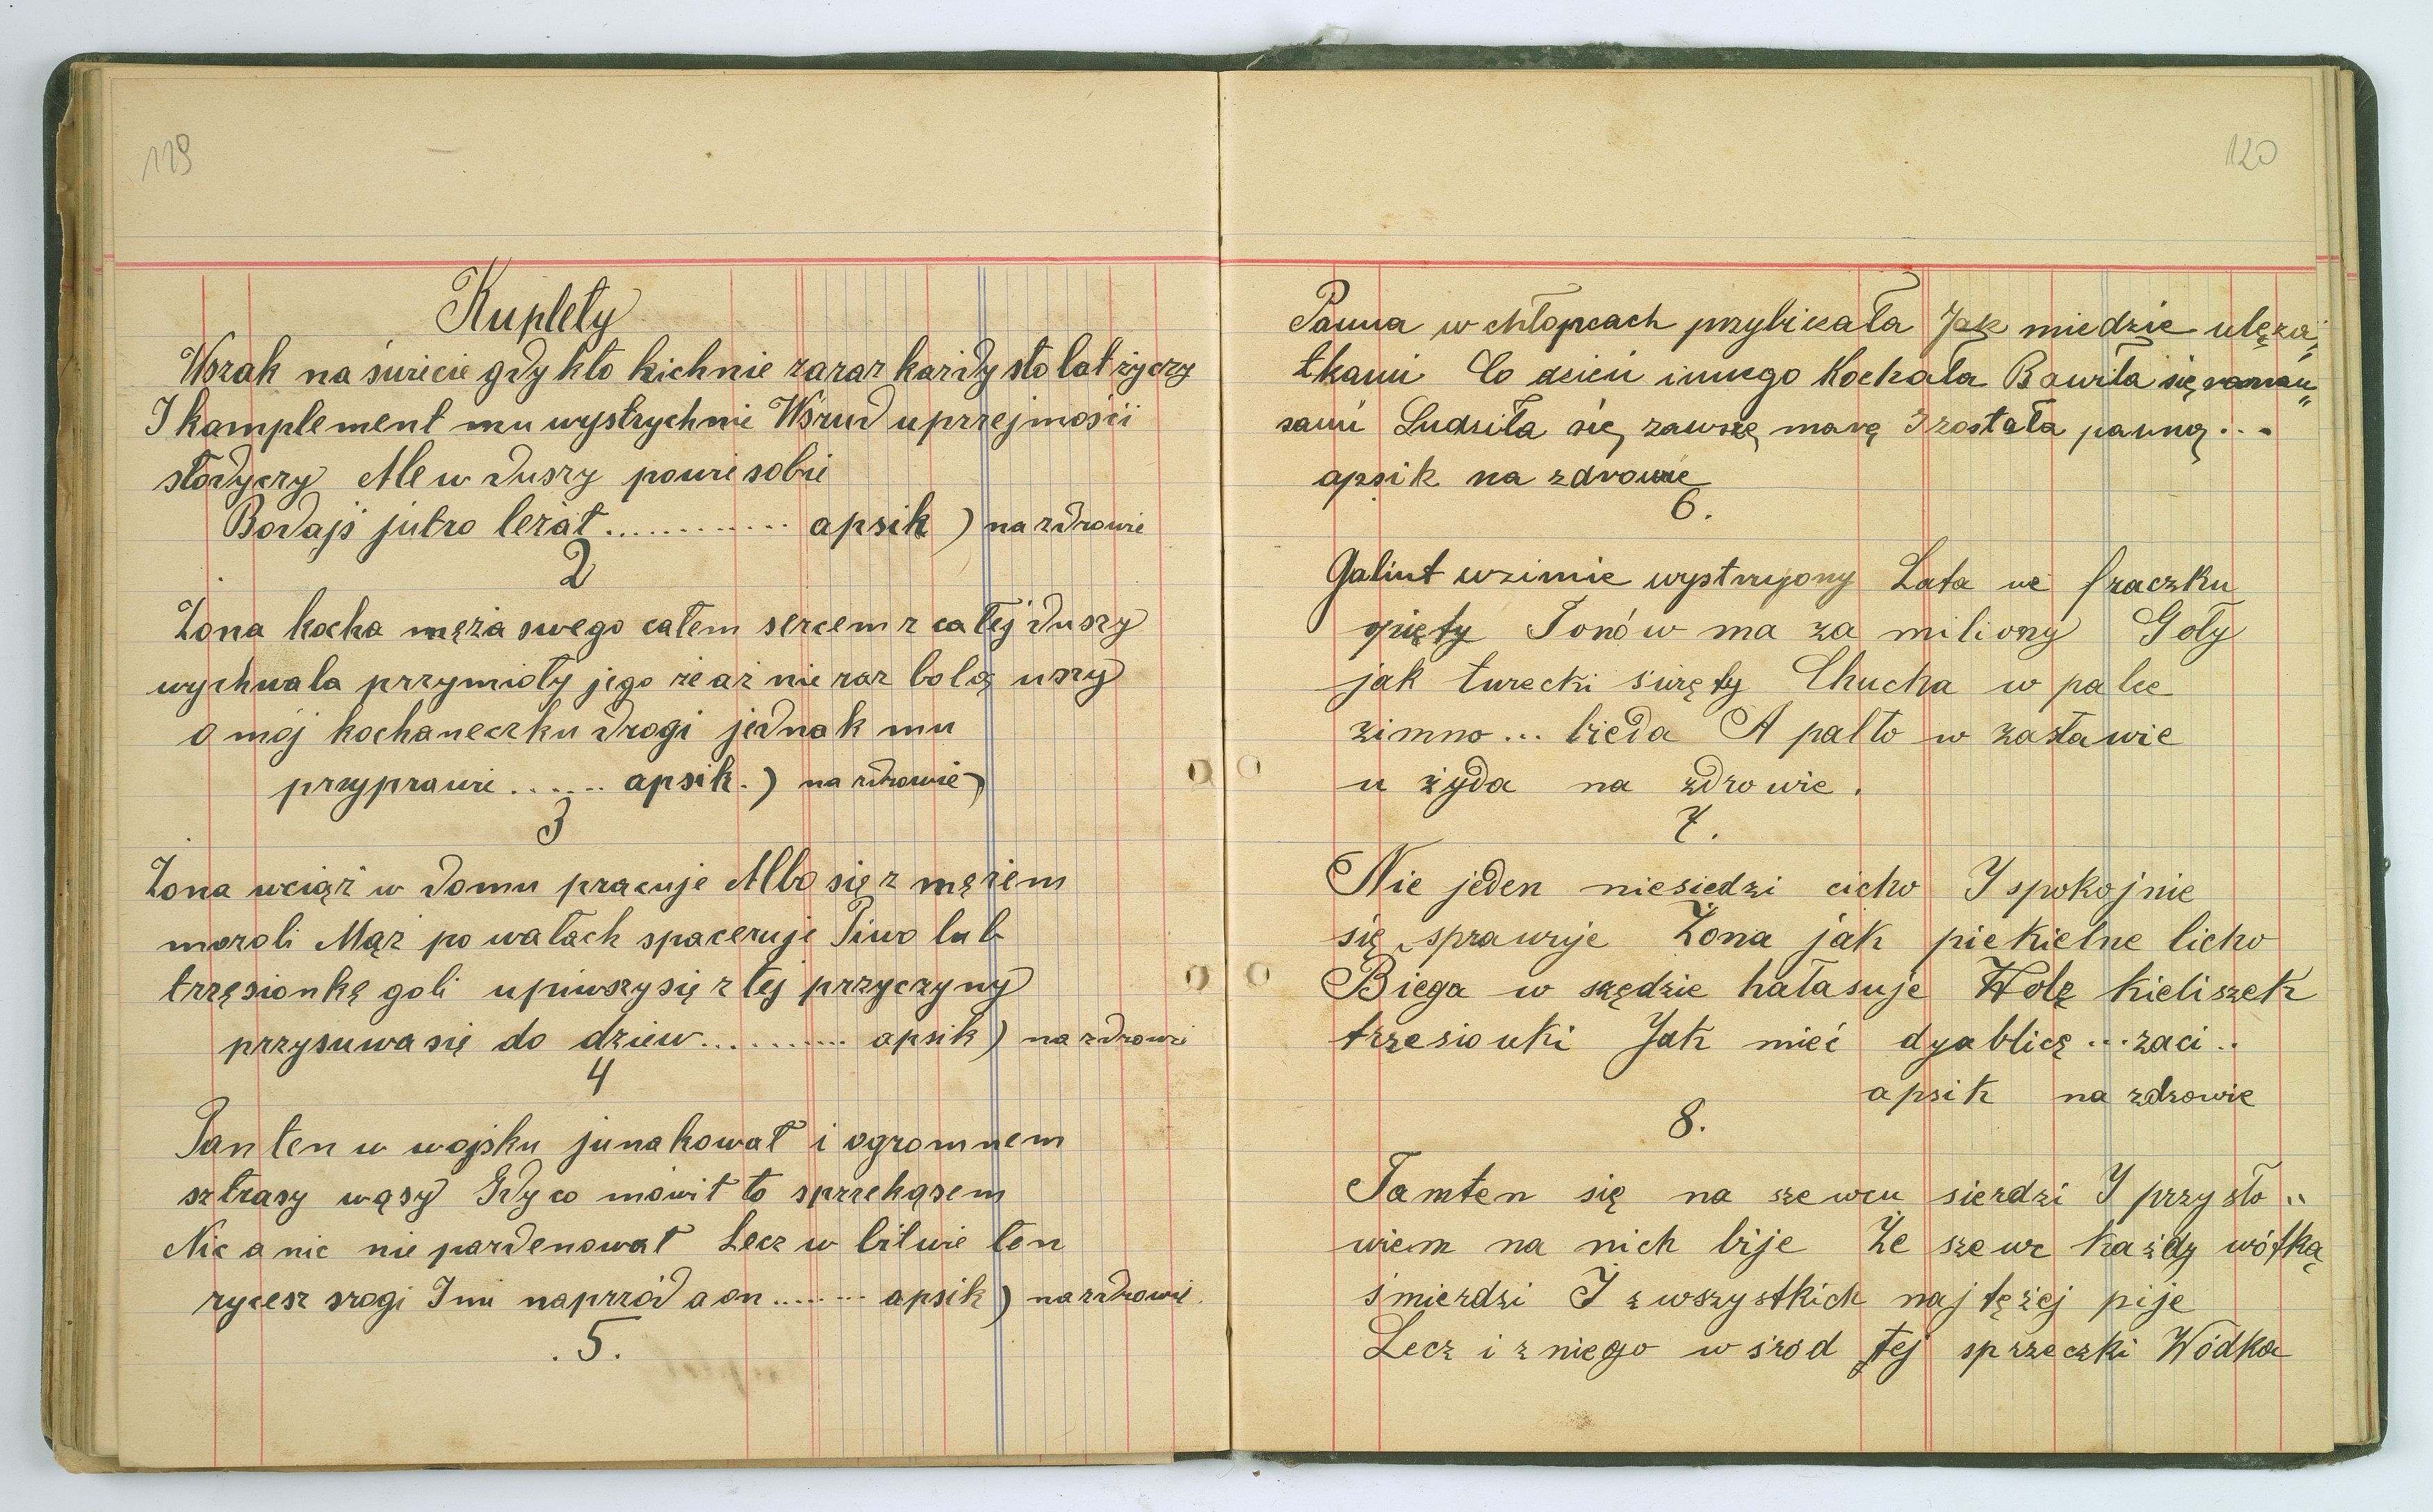 119
Kuplety
Wszak na świecie gdy kto kichnie zaraz każdy sto lat życzy
I kamplement mu wystrychnie Wśrud uprzejmości
słodyczy Ale w duszy powie sobie
Bodajś jutro leżał............ apsik) na zdrowie
2
Żona kocha męża swego całem sercem z całej duszy
wychwala przymioty jego że aż nie raz bolą uszy
o mój kochaneczku drogi jednak mu
przyprawie....... apsik.) na zdrowie)
3
Żona wciąż w domu pracuje Albo się z mężem
mozoli Mąż po wałach spaceruje Piwo lub
trzęsionkę goli upiwszy się z tej przyczyny
przysuwa się do dziew.......... apsik) na zdrowi
4
Pan ten w wojsku junakował i ogromnem
sztrasy wąsy Gdy co mówił to sprzekąsem
Nic a nic nie pardenował Lecz w bitwie ten
rycesz srogi Inni naprzód a on........ apsik) na zdrowie.
.5.
120
Panna w chłopcach przybirała Jak miedzie ulęza„
tkami Co dzień innego Kochała Bawiła się roman„
sami Łudziła się, zawszę marę I została panną...
apsik na zdrowie
6.
Galint w zimie wystrojony Lata we fraczku
spięty Tonów ma za miliony Goły
jak turecki święty Chucha w palce
zimno... bieda A palto w zastawie
u żyda na zdrowie.
7.
Nie jeden niesiedzi cicho I spokojnie
się sprawuje Żona jak piekielne licho
Biega w szędzie hałasuje Wolę kieliszek
trzesionki Jak mieć dyablicę...zaci..
apsik na zdrowie
8.
Tamten się na szewcu sierdzi I przysło„
wiem na nich bije Że szewc każdy wótką
śmierdzi I z wszystkich najtężej pije
Lecz i z niego w śród tej sprzeczki Wódka